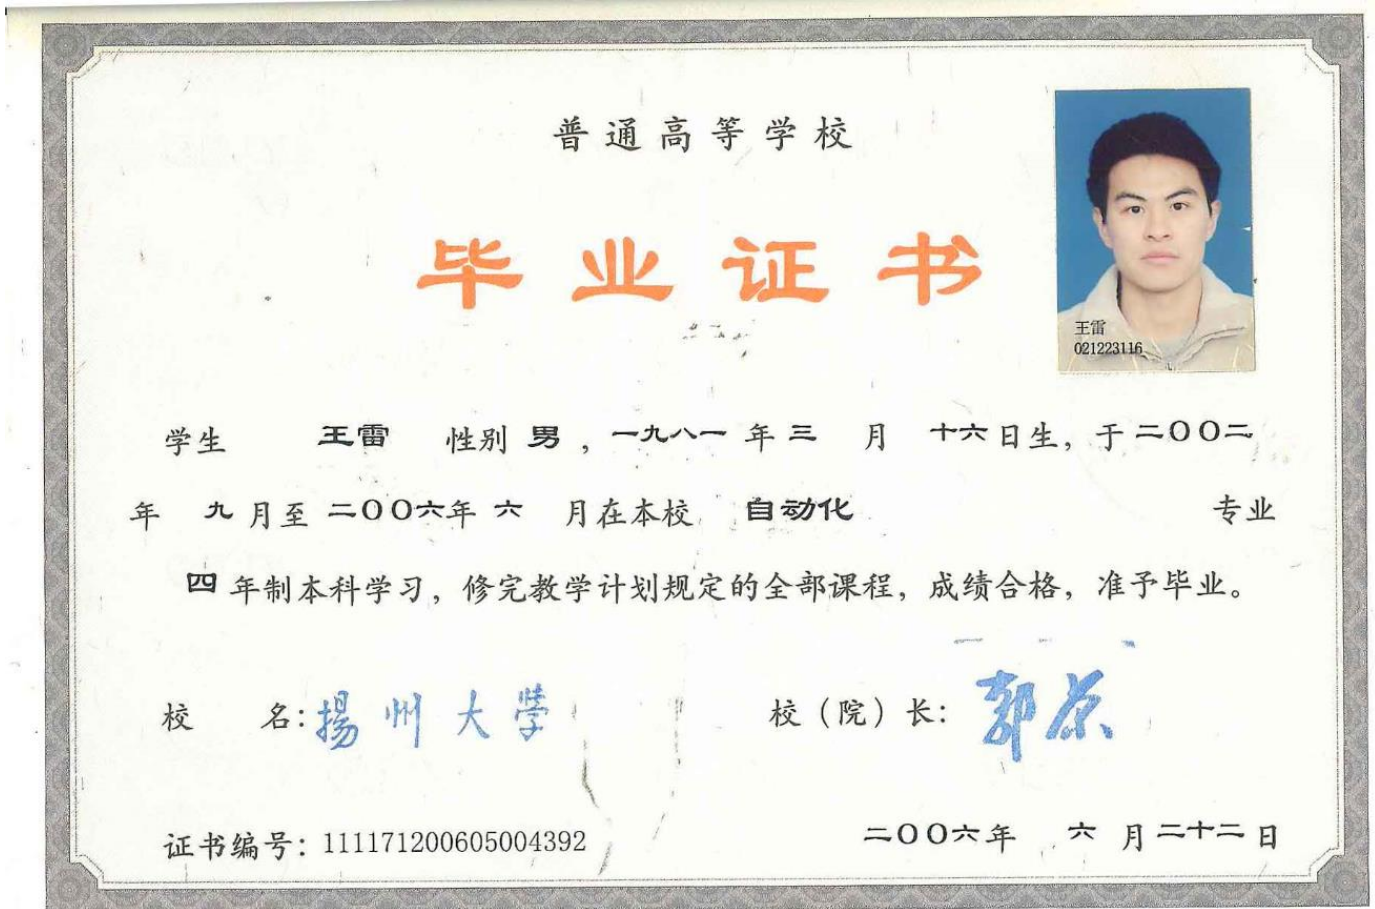 普通高等学校
毕业证书
王雷
021223116
学生 王雷 性别 男，一九八一 年 三 月 十六日生，于 二〇〇二
年 九 月至 二〇〇六年 六 月在本校 自动化 专业
四 年制本科学习，修完教学计划规定的全部课程，成绩合格，准予毕业。
校 名：揚州大學 校（院）长：郭荣
证书编号：111171200605004392 二〇〇六年 六 月 二十二 日